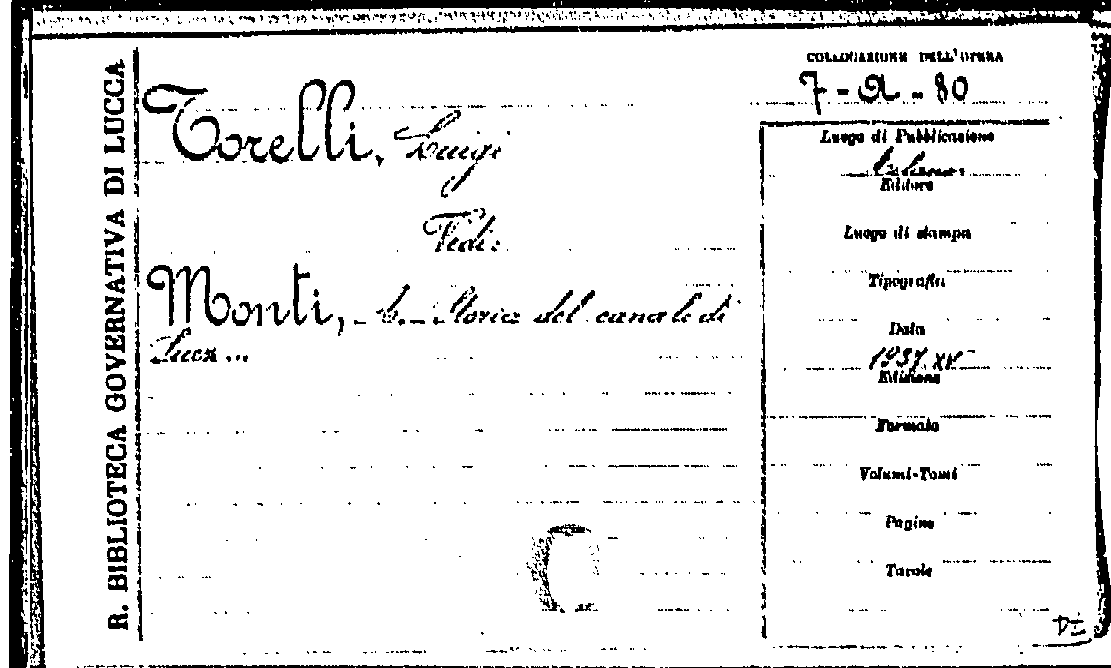 R. BIBLIOTECA GOVERNATIVA DI LUCCA
COLLOCAZIONE DELL'OPERA
7-Q-80
Torelli, Luigi
Vedi:
Monti, A. Storia del canale di
Suez...
Luogo di Pubblicazione
Milano
Editore
Luogo di stampa
Tipografia
Data
1937 XV
Edizione
Formato
Volumi-Tomi
Pagine
Tavole